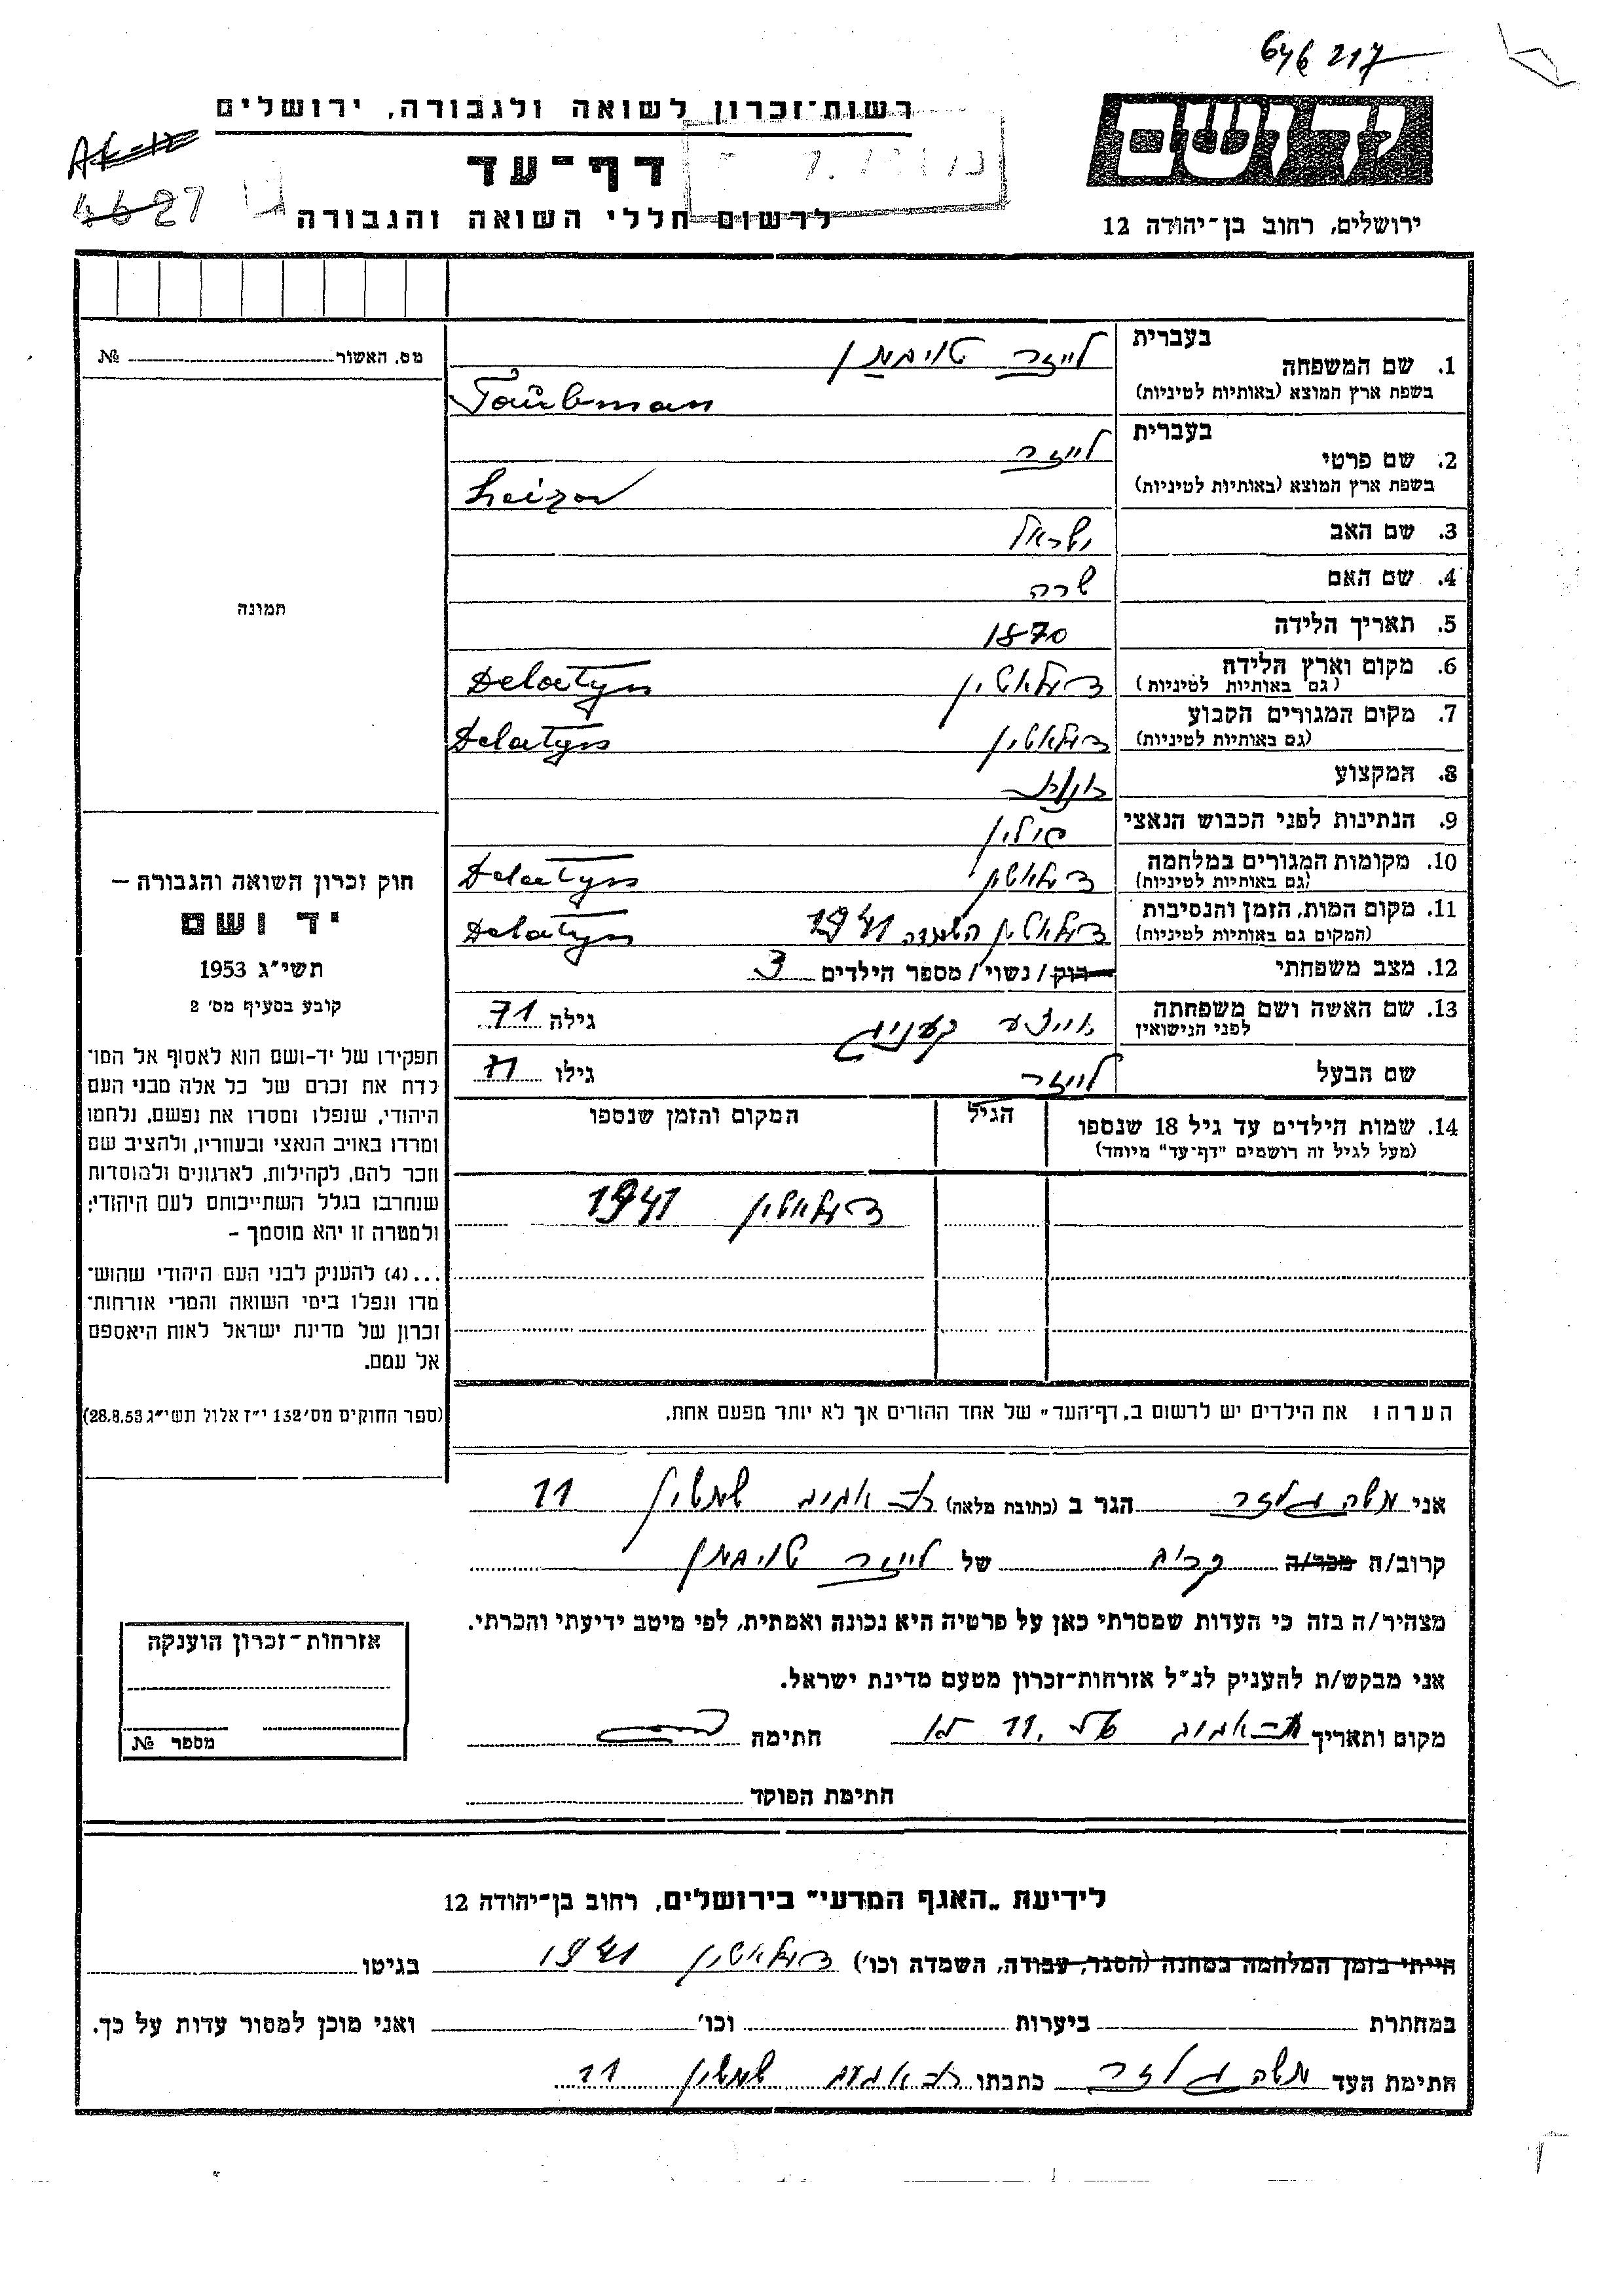 646217
רשות־זכרון לשואה ולגבורה, ירושלים
דף־עד
לרשום חללי השואה והגבורה
4627
יד ושם
ירושלים, רחוב בן־יהודה 12
מס. האשור № 
תמונה
חוק זכרון השואה והגבורה –
יד ושם
תשי״ג 1953
קובע בסעיף מס׳ 2
תפקידו של יד-ושם הוא לאסוף אל המו־
לדת את זכרם של כל אלה מבני העם
היהודי, שנפלו ומסרו את נפשם, נלחמו
ומרדו באויב הנאצי ובעוזריו, ולהציב שם
וזכר להם, לקהילות, לארגונים ולמוסדות
שנחרבו בגלל השתייכותם לעם היהודי;
ולמטרה זו יהא מוסמך –
...(4) להעניק לבני העם היהודי שהוש־
מדו ונפלו בימי השואה והמרי אזרחות־
זכרון של מדינת ישראל לאות היאספם
אל עמם.
(ספר החוקים מס׳ 132 י״ז אלול תשי״ג 28.8.53)
בעברית
1. שם המשפחה לייזר טויבמן
בשפת ארץ המוצא (באותיות לטיניות) Taubman
בעברית
2. שם פרטי לייזר
בשפת ארץ המוצא (באותיות לטיניות) Leizor
3. שם האב ישראל
4. שם האם שרה
5. תאריך הלידה 1870
6. מקום וארץ הלידה דעלאטין Delatyn
(גם באותיות לטיניות)
7. מקום המגורים הקבוע דעלאטין Delatyn
(גם באותיות לטיניות)
8. המקצוע
9. הנתינות לפני הכבוש הנאצי פולין
10. מקומות המגורים במלחמה דעלאטין Delatyn
(גם באותיות לטיניות)
11. מקום המות, הזמן והנסיבות דעלאטין השמדה 1941 Delatyn
(המקום גם באותיות לטיניות)
12. מצב משפחתי רוק/נשוי/ מספר הילדים 3
13. שם האשה ושם משפחתה גילה 71
לפני הנישואין
שם הבעל לייזר גילו 71
14. שמות הילדים עד גיל 18 שנספו הגיל המקום והזמן שנספו
(מעל לגיל זה רושמים ״דף־עד״ מיוחד)
דעלאטין 1941
הערה: את הילדים יש לרשום ב„דף־העד״ של אחד ההורים אך לא יותר מפעם אחת.
אני משה הגר ב (כתובת מלאה) 11
קרוב/ה מכר/ה קרוב של לייזר טויבמן
מצהיר/ה בזה כי העדות שמסרתי כאן על פרטיה היא נכונה ואמתית, לפי מיטב ידיעתי והכרתי.
אני מבקש/ת להעניק לנ״ל אזרחות־זכרון מטעם מדינת ישראל.
מקום ותאריך חתימה
חתימת הפוקד
אזרחות־זכרון הוענקה
מספר №
לידיעת „האגף המדעי״ בירושלים, רחוב בן־יהודה 12
הייתי בזמן המלחמה במחנה (הסגר, עבודה, השמדה וכו׳) דעלאטין 1941 בגיטו
במחתרת ביערות וכו׳ ואני מוכן למסור עדות על כך.
חתימת העד משה כתבתו 11